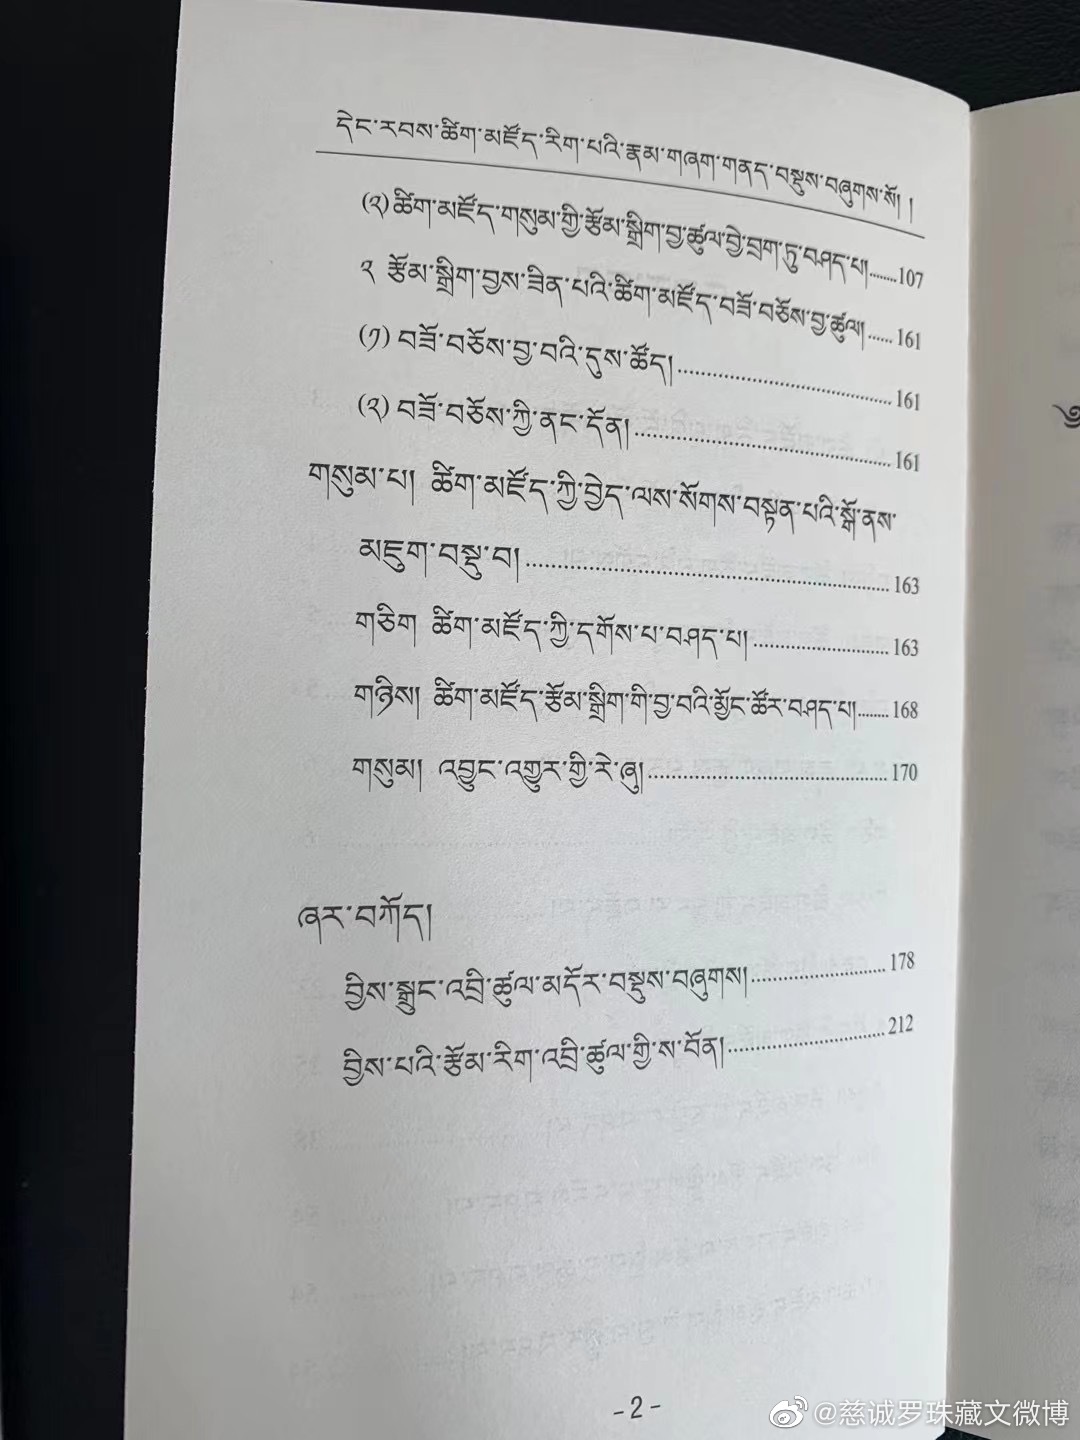 དེང་རབས་ཚིག་མཛོད་རིག་པའི་རྣམ་གཞག་གནད་བསྡུས་བཞུགས་སོ། །
(༢)ཚིག་མཛོད་གསུམ་གྱི་རྩོམ་སྒྲིག་བྱ་ཚུལ་བྱེ་བྲག་ཏུ་བཤད་པ།.......107
༢ རྩོམ་སྒྲིག་བྱས་ཟིན་པའི་ཚིག་མཛོད་བཟོ་བཅོས་བྱ་ཚུལ།...... 161
(༡) བཟོ་བཅོས་བྱ་བའི་དུས་ཚོད།........................................ 161
(༢) བཟོ་བཅོས་ཀྱི་ནང་དོན།................................................ 161
གསུམ་པ། ཚིག་མཛོད་ཀྱི་བྱེད་ལས་སོགས་བསྟན་པའི་སྒོ་ནས་
མཇུག་བསྡུ་བ།.................................................................. 163
གཅིག ཚིག་མཛོད་ཀྱི་དགོས་པ་བཤད་པ།.......................... 163
གཉིས། ཚིག་མཛོད་རྩོམ་སྒྲིག་གི་བྱ་བའི་མྱོང་ཚོར་བཤད་པ།....... 168
གསུམ། འབྱུང་འགྱུར་གྱི་རེ་ཞུ།............................................ 170
ཞར་བཀོད།
བྱིས་སྒྲུང་འབྲི་ཚུལ་མདོར་བསྡུས་བཞུགས།......................... 178
བྱིས་པའི་རྩོམ་རིག་འབྲི་ཚུལ་གྱི་ས་བོན།............................. 212
- 2 -
@慈诚罗珠藏文微博